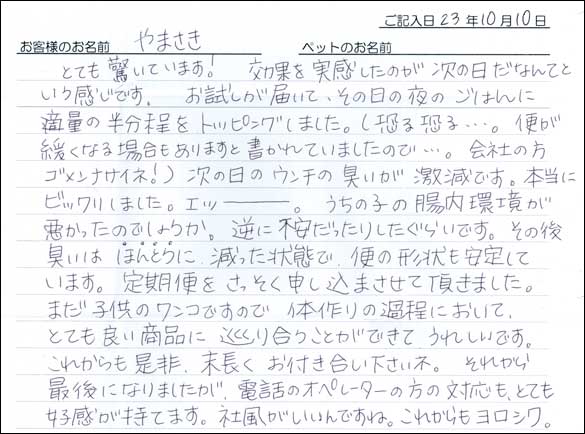 ご記入日 23年10月10日
お客様のお名前 やまさき ペットのお名前
とても驚いています! 効果を実感したのが次の日だなんてと
いう感じです。 お試しが届いて、その日の夜のごはんに
適量の半分程をトッピングしました。(恐る恐る…。便が
緩くなる場合もありますと書かれていましたので…。会社の方
ゴメンナサイネ!)次の日のウンチの臭いが激減です。本当に
ビックリしました。エッ―――。うちの子の腸内環境が
悪かったのでしょうか。逆に不安だったりしたぐらいです。その後
臭いはほんとうに、減った状態で、便の形状も安定して
います。定期便をさっそく申し込まさせて頂きました。
まだ子供のワンコですので、体作りの過程において、
とても良い商品に巡り合うことができて、うれしいです。
これからも是非、末長くお付き合い下さいネ。それから
最後になりましたが、電話のオペレーターの方の対応も、とても
好感が持てます。社風がいいんですね。これからもヨロシク。